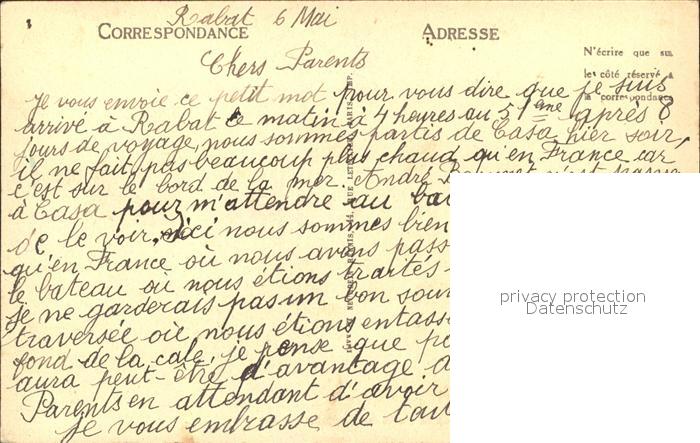 Rabat 6 Mai
CORRESPONDANCE
ADRESSE
N'écrire que sur
le côté réservé à
la correspondance
Chers Parents
Je vous envoie ce petit mot pour vous dire que je suis
arrivé à Rabat ce matin à 4 heures au 51ème après 8
jours de voyage, nous sommes partis de Casa hier soir,
il ne fait pas beaucoup plus chaud qu'en France car
c'est sur le bord de la mer. André
à Casa pour m'attendre au
de le voir, ici nous sommes bien
qu'en France où nous avons
le bateau où nous étions traités
je ne garderais pas un bon
traversée où nous étions
fond de la cale, je pense que
aura peut-être d'avantage
Parents en attendant d'avoir
je vous embrasse de
privacy protection
Datenschutz